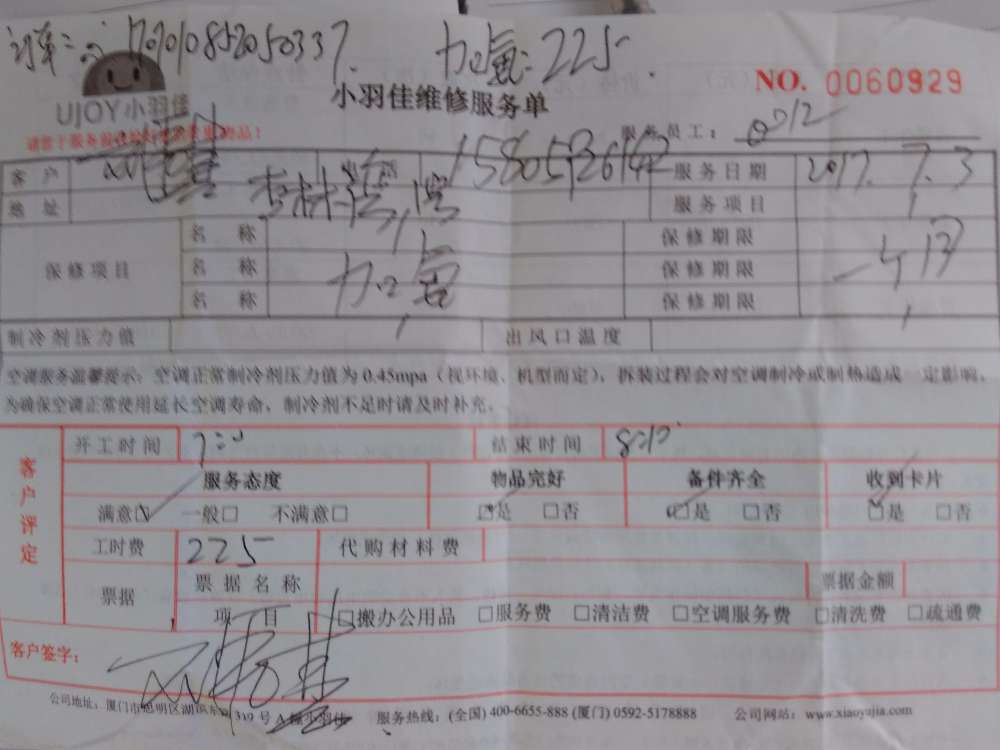 170701085205033? 加氟:225
UJOY小羽佳
小羽佳维修服务单
NO. 0060929
服务员工: 0012
客户 15805926142 服务日期 2017.7.3
地址 服务项目
保修项目 名称 保修期限
名称 加氟 保修期限 一个月
名称 保修期限
制冷剂压力值 出风口温度
空调服务温馨提示:空调正常制冷剂压力值为0.45mpa(视环境、机型而定),拆装过程会对空调制冷或制热造成一定影响,
为确保空调正常使用延长空调寿命,制冷剂不足时请及时补充。
客户评定
开工时间 7:00 结束时间 8:10
服务态度 物品完好 备件齐全 收到卡片
满意□ 一般□ 不满意□ □是 □否 □是 □否 □是 □否
工时费 225 代购材料费
票据 票据名称 票据金额
项目 □搬办公用品 □服务费 □清洁费 □空调服务费 □清洗费 □疏通费
客户签字:
公司地址:厦门市思明区湖滨 319号 服务热线:(全国) 400-6655-888 (厦门) 0592-5178888 公司网站:www.xiaoyujia.com